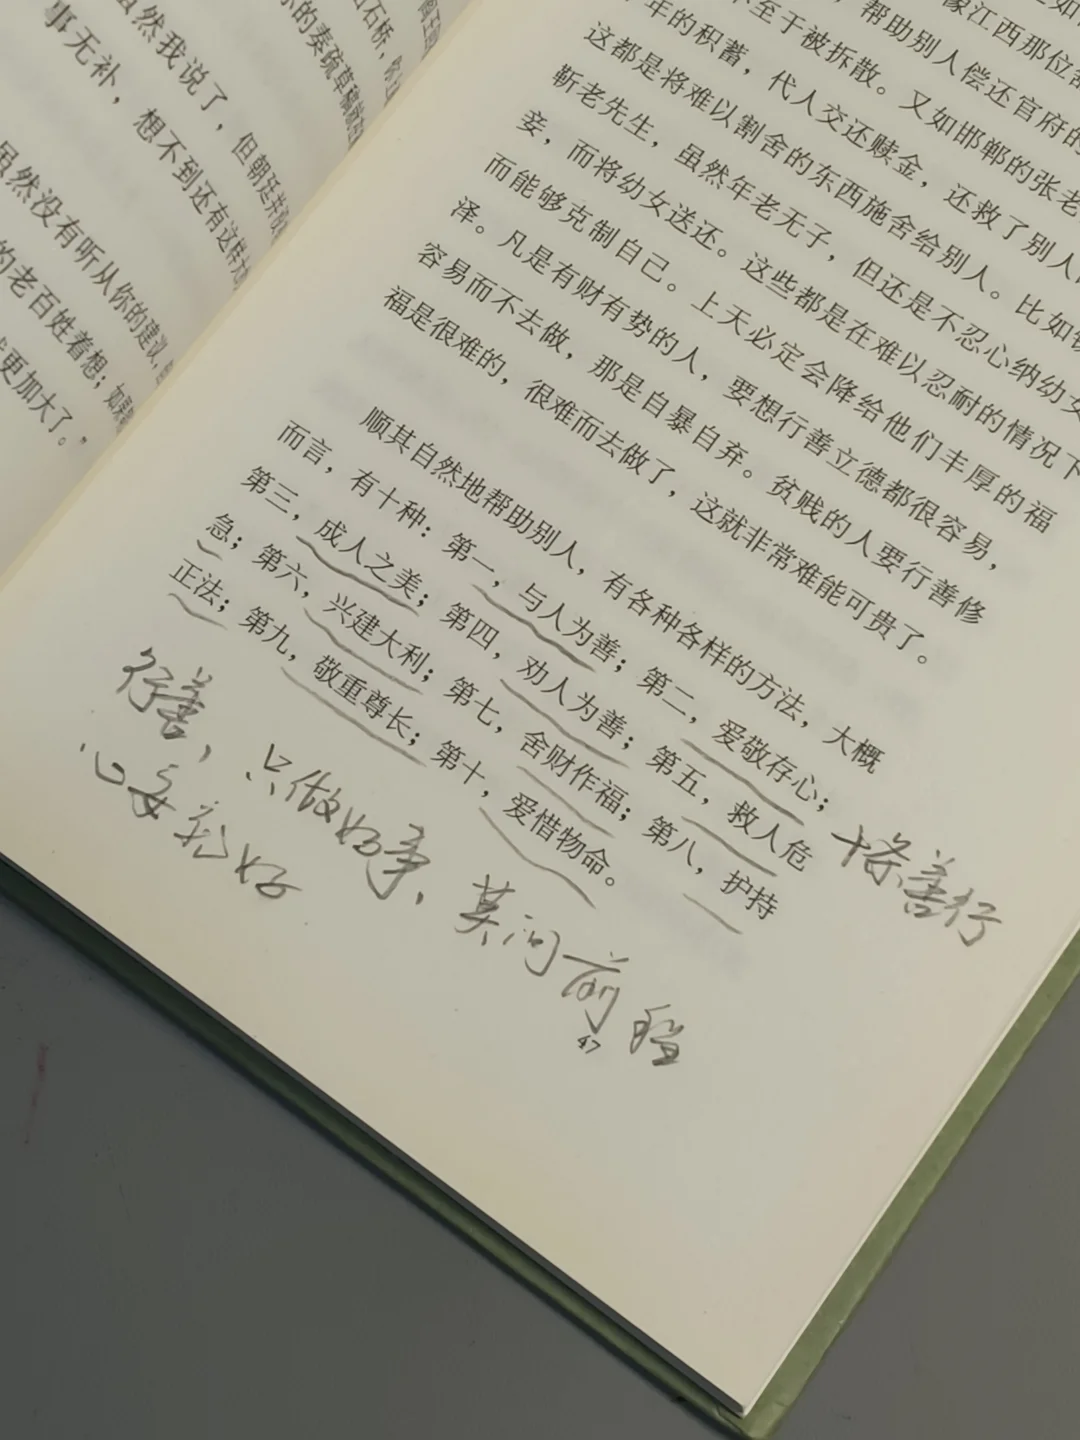 虽然我说了，但朝廷并
事无补，想不到还有这样
虽然没有听从你的建议，
的老百姓着想；如果
更加大了。”
石桥，
的奏疏草稿
像江西那位
帮助别人偿还官府的
不至于被拆散。又如邯郸的张老
年的积蓄，代人交还赎金，还救了别人
这都是将难以割舍的东西施舍给别人。比如
靳老先生，虽然年老无子，但还是不忍心纳幼女
妾，而将幼女送还。这些都是在难以忍耐的情况下
而能够克制自己。上天必定会降给他们丰厚的福
泽。凡是有财有势的人，要想行善立德都很容易，
容易而不去做，那是自暴自弃。贫贱的人要行善修
福是很难的，很难而去做了，这就非常难能可贵了。
顺其自然地帮助别人，有各种各样的方法，大概
而言，有十种：第一，与人为善；第二，爱敬存心；
第三，成人之美；第四，劝人为善；第五，救人危
急；第六，兴建大利；第七，舍财作福；第八，护持
正法；第九，敬重尊长；第十，爱惜物命。
十条善行
行善，只做好事，莫问前程
心安就好
47